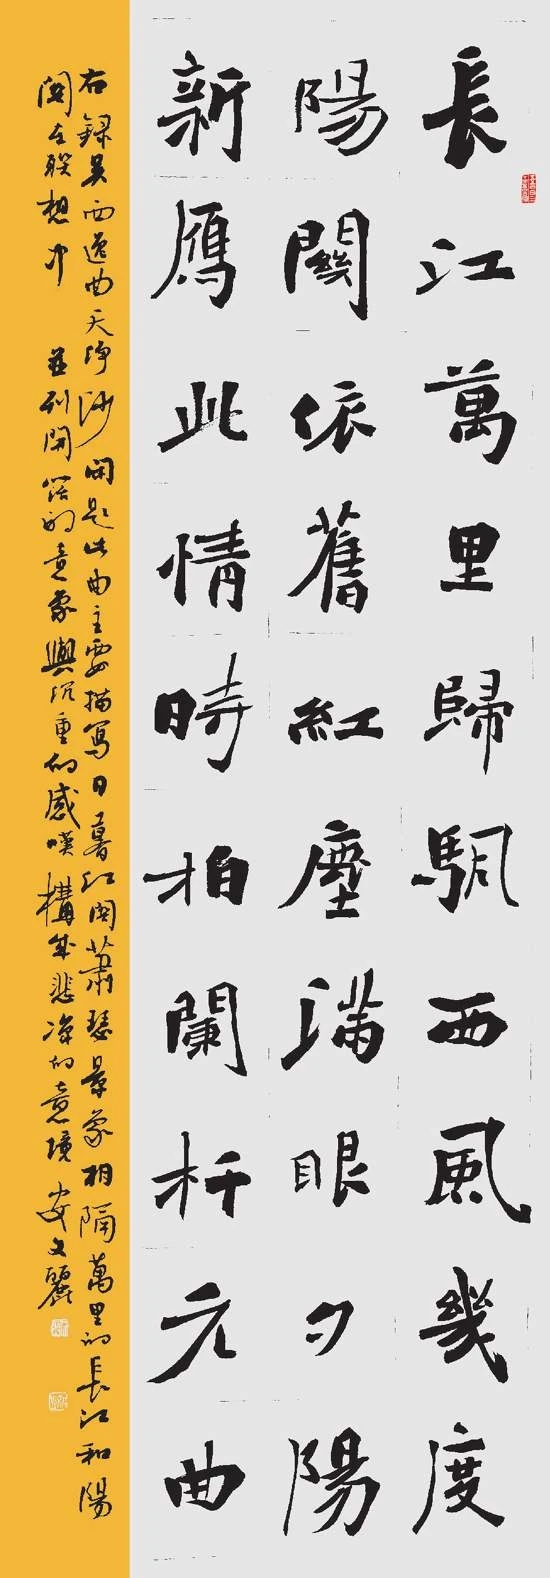 長江萬里歸颿西風幾度
陽關依舊紅塵滿眼夕陽
新鴈此情時拍闌杆元曲
右錄吳西逸曲天淨沙閒題此曲主要描寫日暮江關蕭瑟景象相隔萬里的長江和陽
關在聯想中並列開闊的意象與沉重的感嘆構成悲涼的意境安文麗